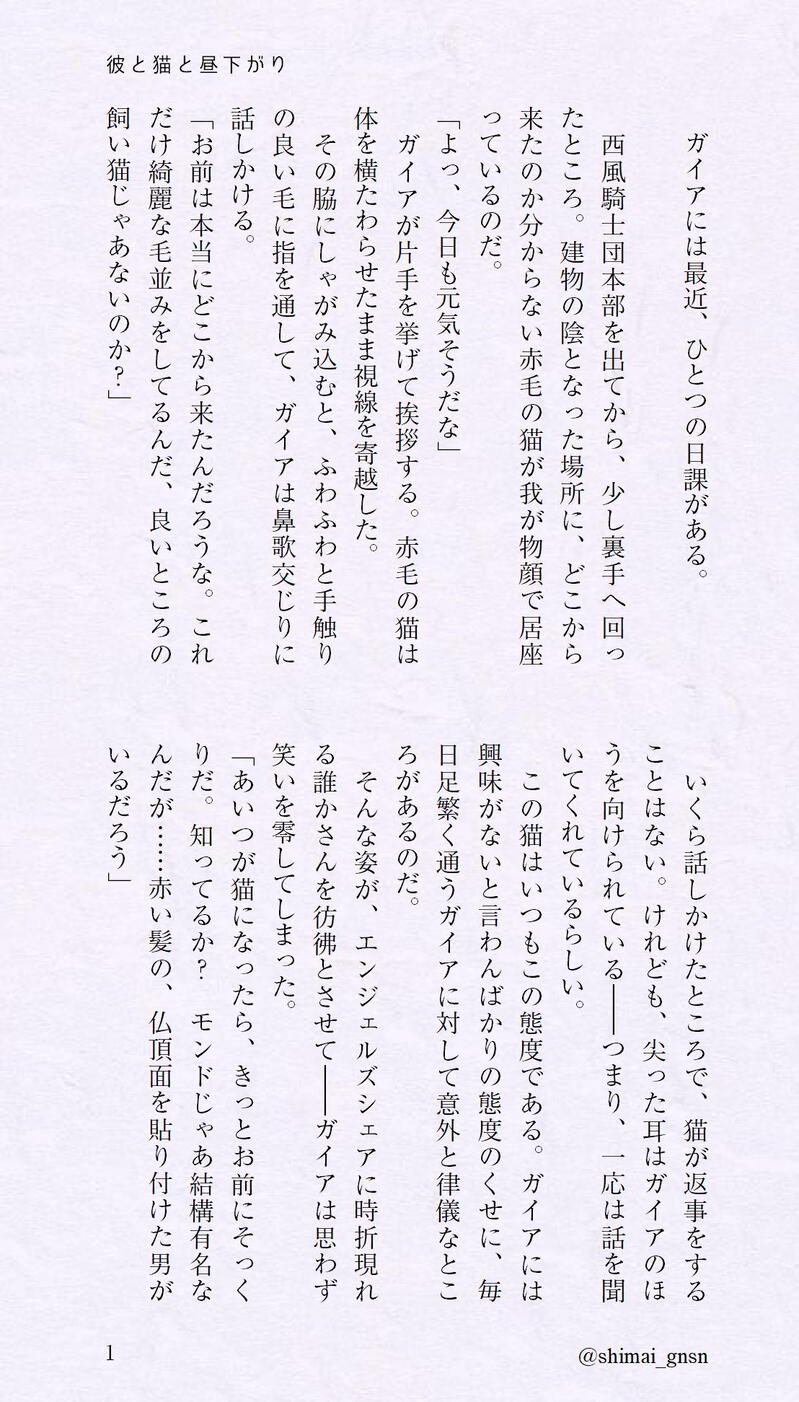 彼と猫と昼下がり
ガイアには最近、ひとつの日課がある。
西風騎士団本部を出てから、少し裏手へ回っ
たところ。建物の陰となった場所に、どこから
来たのか分からない赤毛の猫が我が物顔で居座
っているのだ。
「よっ、今日も元気そうだな」
ガイアが片手を挙げて挨拶する。赤毛の猫は
体を横たわらせたまま視線を寄越した。
その脇にしゃがみ込むと、ふわふわと手触り
の良い毛に指を通して、ガイアは鼻歌交じりに
話しかける。
「お前は本当にどこから来たんだろうな。これ
だけ綺麗な毛並みをしてるんだ、良いところの
飼い猫じゃあないのか?」
いくら話しかけたところで、猫が返事をする
ことはない。けれども、尖った耳はガイアのほ
うを向けられている――つまり、一応は話を聞
いてくれているらしい。
この猫はいつもこの態度である。ガイアには
興味がないと言わんばかりの態度のくせに、毎
日足繁く通うガイアに対して意外と律儀なとこ
ろがあるのだ。
そんな姿が、エンジェルズシェアに時折現れ
る誰かさんを彷彿とさせて――ガイアは思わず
笑いを零してしまった。
「あいつが猫になったら、きっとお前にそっく
りだ。知ってるか? モンドじゃあ結構有名な
んだが……赤い髪の、仏頂面を貼り付けた男が
いるだろう」
1
@shimai_gnsn